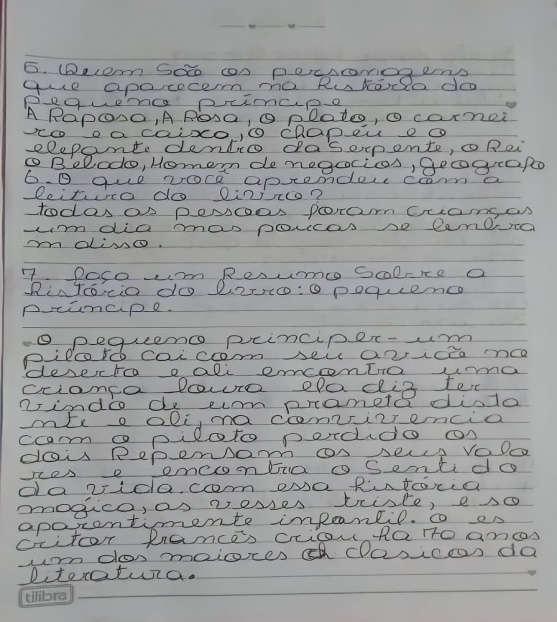 5. Quem são os personagens
que aparecem na história do
pequeno príncipe
A Raposa, A Rosa, o piloto, o carnei
ro e a caixa, o chapéu e o
elepante dentro da serpente, o Rei
o Bebado, Homem de negocios, geograpo
6. O que você aprendeu com a
leitura do livro?
todas as pessoas foram crianças
um dia mas poucas se lembra
m disso.
7. Faça um Resumo Sobre a
história do livro: o pequeno
príncipe.
o pequeno principer - um
piloto cai com seu avião no
deserto e ali emcontra uma
criança loura ela diz ter
vindo de um praneta dista
nte e ali, na convivencia
com o piloto perdido os
dois Repensam os seus valo
res e emcontra o Sentido
da vida. com essa história
magica, as vesses triste, e so
aparentimente inpantil. o es
critor Francês criou ha 70 anos
um dos maiores clasicos da
literatura.
tilibra